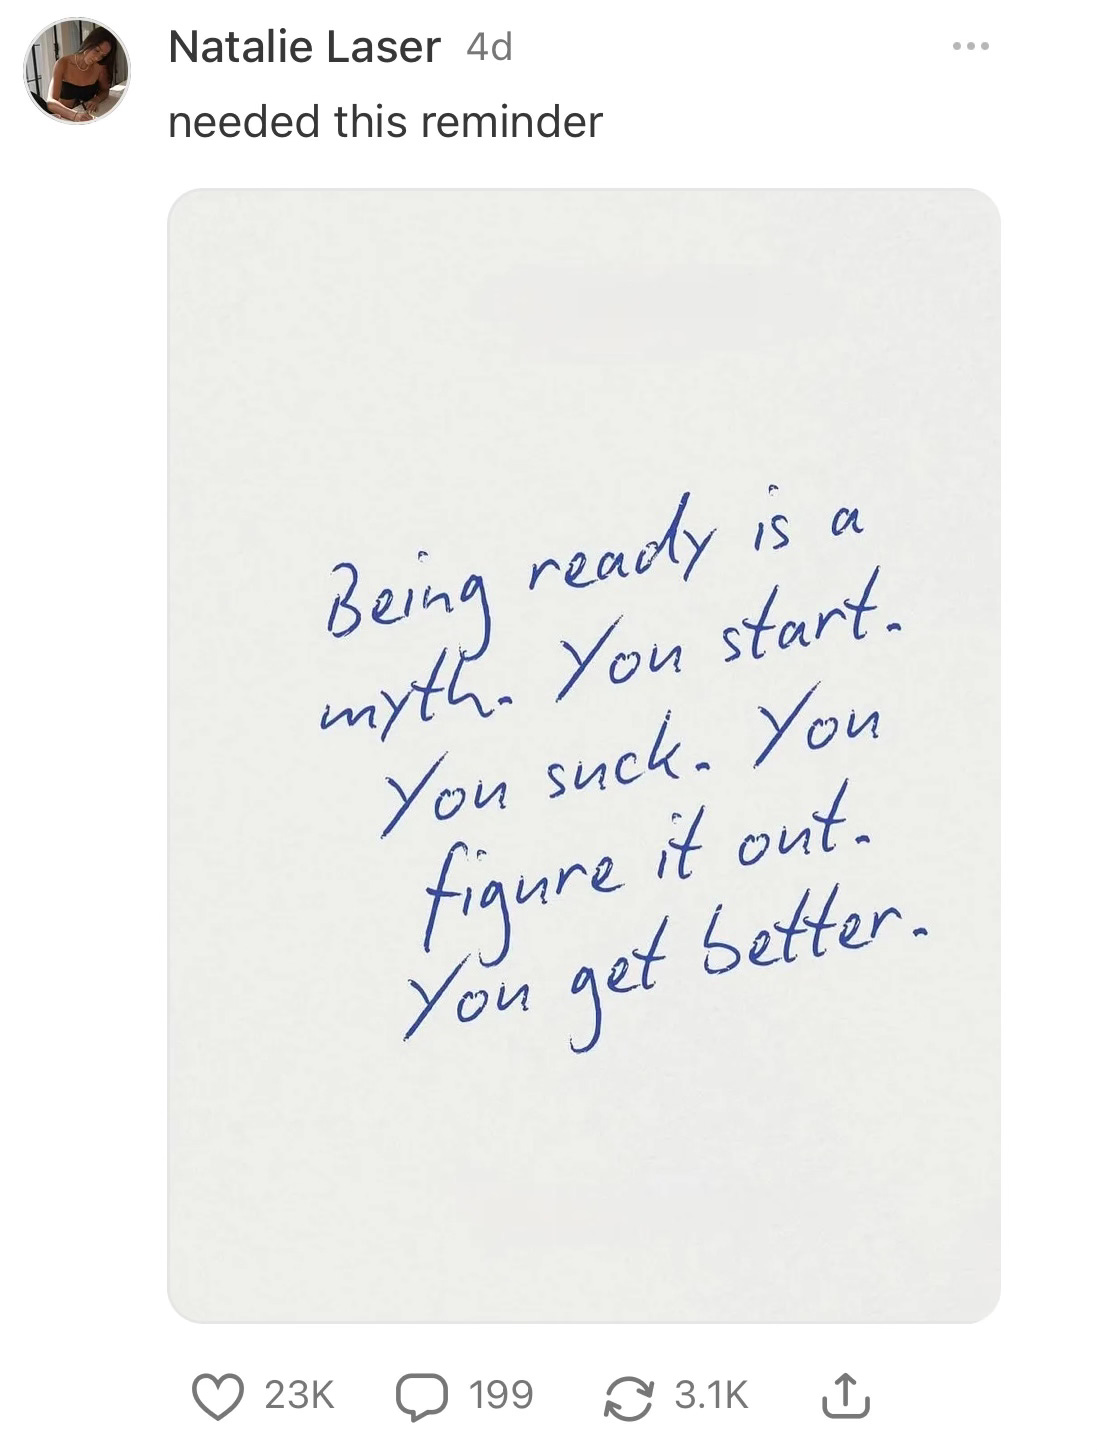 Natalie Laser 4d
needed this reminder
Being ready is a
myth. You start.
You suck. You
figure it out.
You get better.
23K 199 3.1K